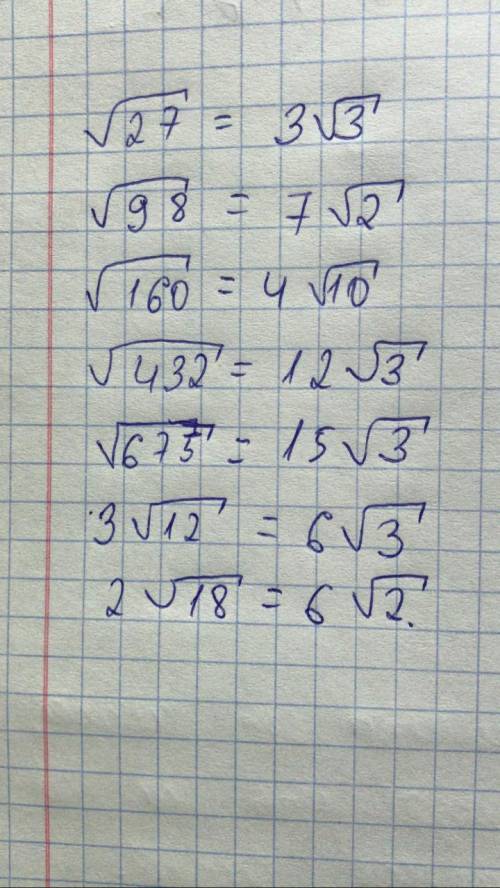 √27 = 3√3
√98 = 7√2
√160 = 4√10
√432 = 12√3
√675 = 15√3
3√12 = 6√3
2√18 = 6√2.